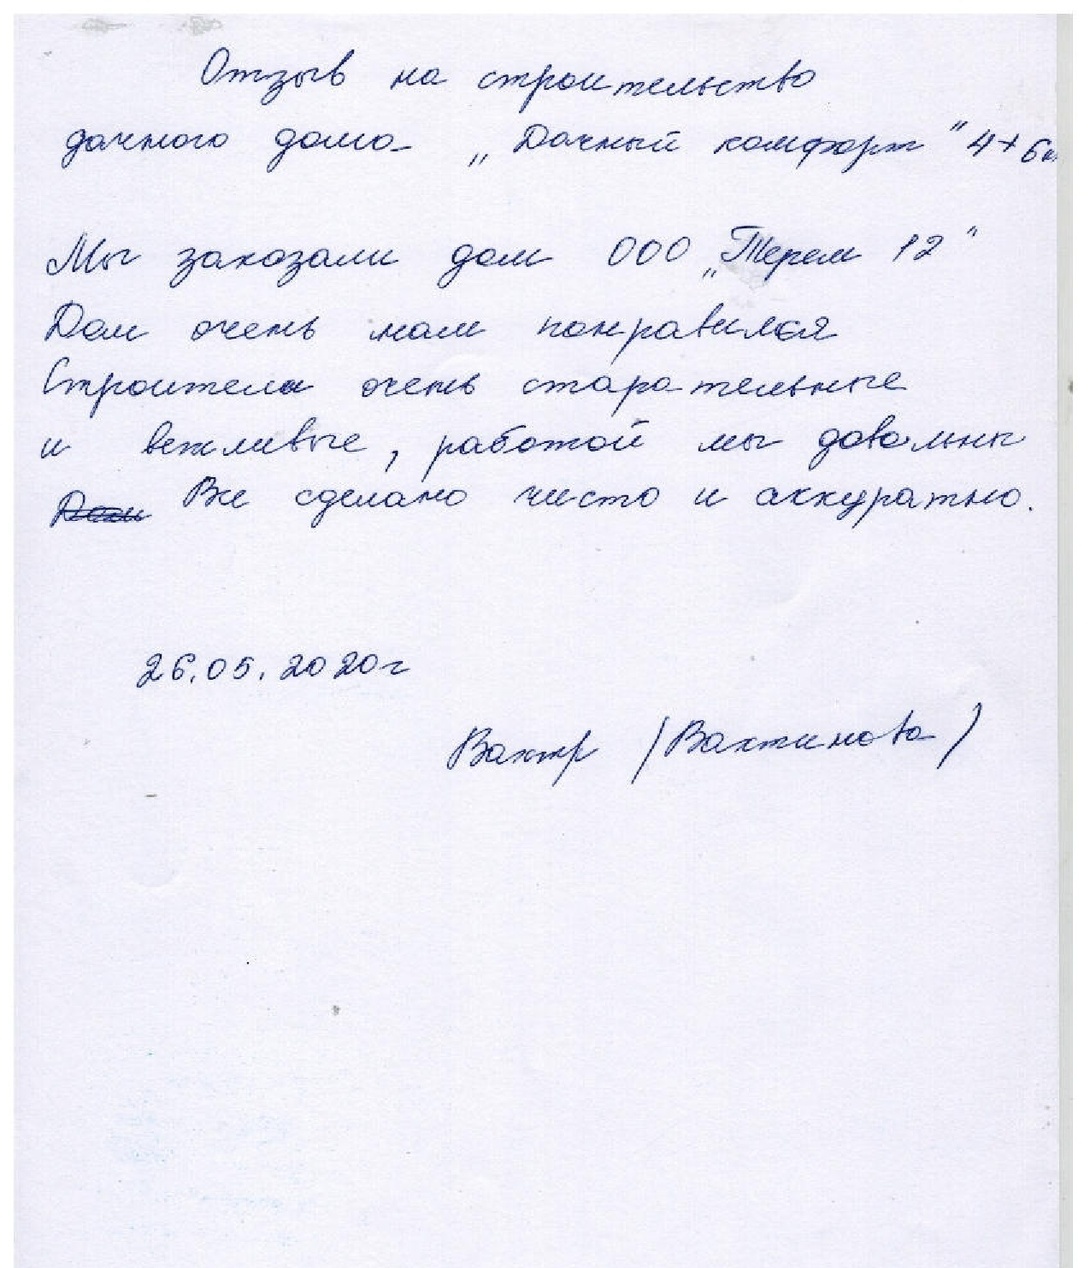 Отзыв на строительство
дачного дома „Дачный комфорт" 4×6м
Мы заказали дом ООО „Терем 12"
Дом очень нам понравился
Строители очень старательные
и вежливые, работой мы довольны
Все сделано чисто и аккуратно.
26.05.2020г
(Вахтинова)